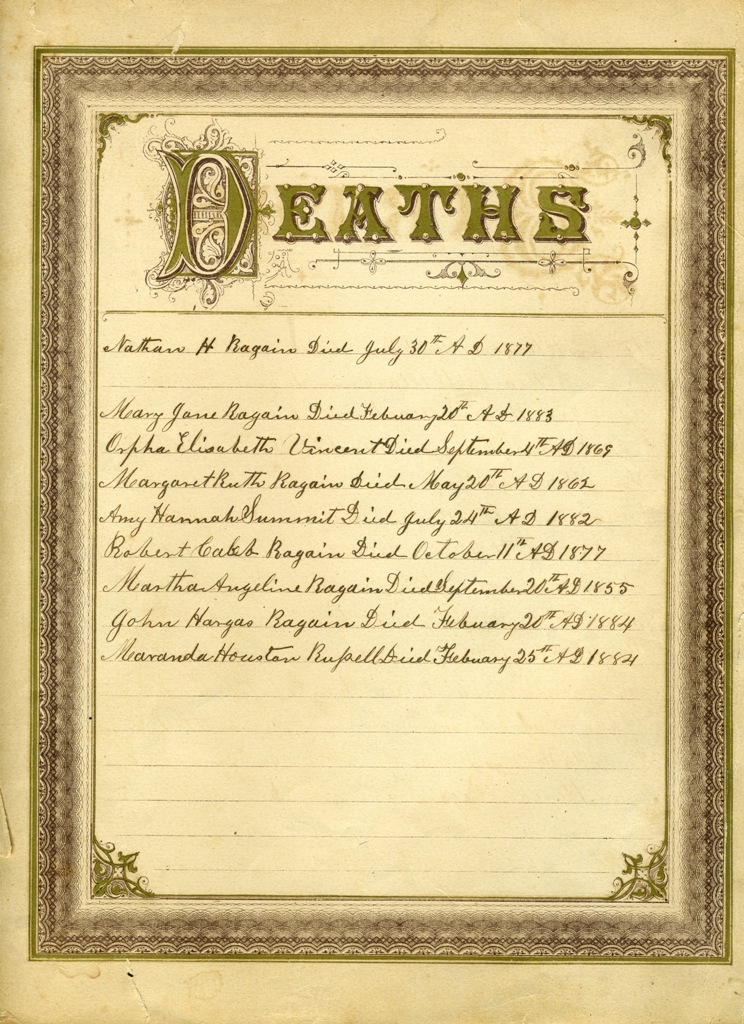 DEATHS
Nathan H Ragain Died July 30th A D 1877
Mary Jane Ragain Died Febuary 20th A D 1883
Orpha Elisabeth Vincent Died September 4th AD 1869
Margaret Ruth Ragain Died May 20th A D 1862
Amy Hannah Summit Died July 24th A D 1882
Robert Caleb Ragain Died October 11th AD 1877
Martha Angeline Ragain Died September 20th AD 1855
John Hargas Ragain Died Febuary 20th AD 1884
Maranda Houston Russell Died Febuary 25th A D 1884